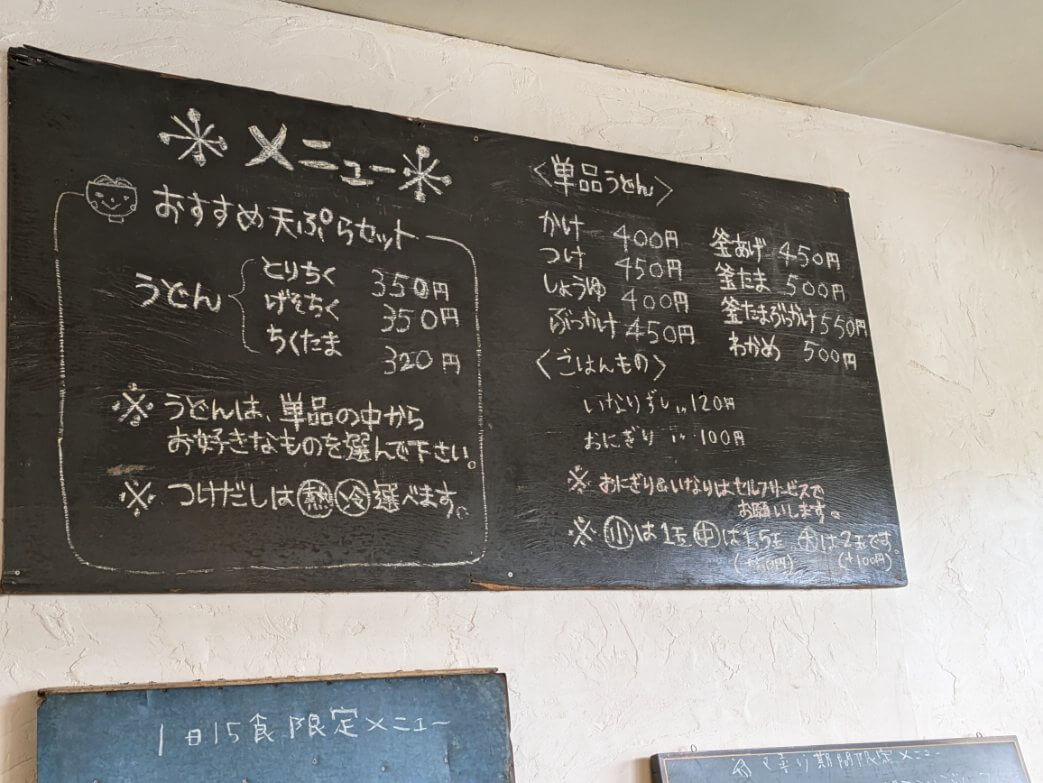 メニュー
おすすめ天ぷらセット
うどん
とりちく 350円
げそちく 350円
ちくたま 320円
※ うどんは、単品の中から
お好きなものを選んで下さい。
※ つけだしは熱冷選べます。
<単品うどん>
かけ 400円
つけ 450円
しょうゆ 400円
ぶっかけ 450円
釜あげ 450円
釜たま 500円
釜たまぶっかけ 550円
わかめ 500円
<ごはんもの>
いなりずし 120円
おにぎり 100円
※ おにぎり&いなりはセルフサービスで
お願いします。
※ 小は1玉 中は1.5玉 大は2玉です。
(+50円) (+100円)
1日15食限定メニュー
期間限定メニュー